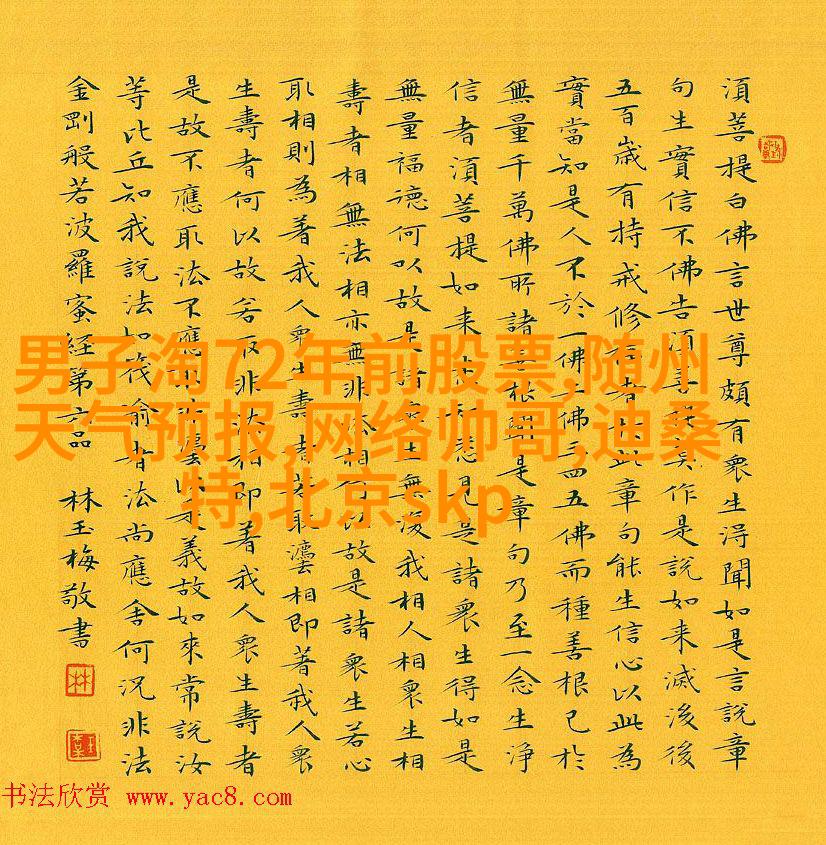 須菩提白佛言世尊頗有衆生淂聞如是言說章
句生實信不佛告須菩提莫作是說如来滅後後
五百歲有持戒修福者於此章句能生信心以此為
實當知是人不於一佛二佛三四五佛而種善根已於
無量千萬佛所諸善根聞是章句乃至一念生淨
信者須菩提如来悉知悉見是諸衆生得如是
無量福德何以故是諸衆生無復我相人相衆生相
壽者相無法相亦無非法相何以故是諸衆生若心
取相則為著我人衆生壽者若取灋相即著我人衆
生壽者何以故若取非法相即著我人衆生壽者
是故不應取法不應取非灋以是義故如來常說汝
等比丘知我說法如筏喻者法尚應舍何況非法
金剛般若波羅蜜經第六品 林玉梅敬書
林
男子淘72年前股票,随州
天气预报,网络帅哥,迪桑
特,北京skp
书法欣赏 www.yac8.com